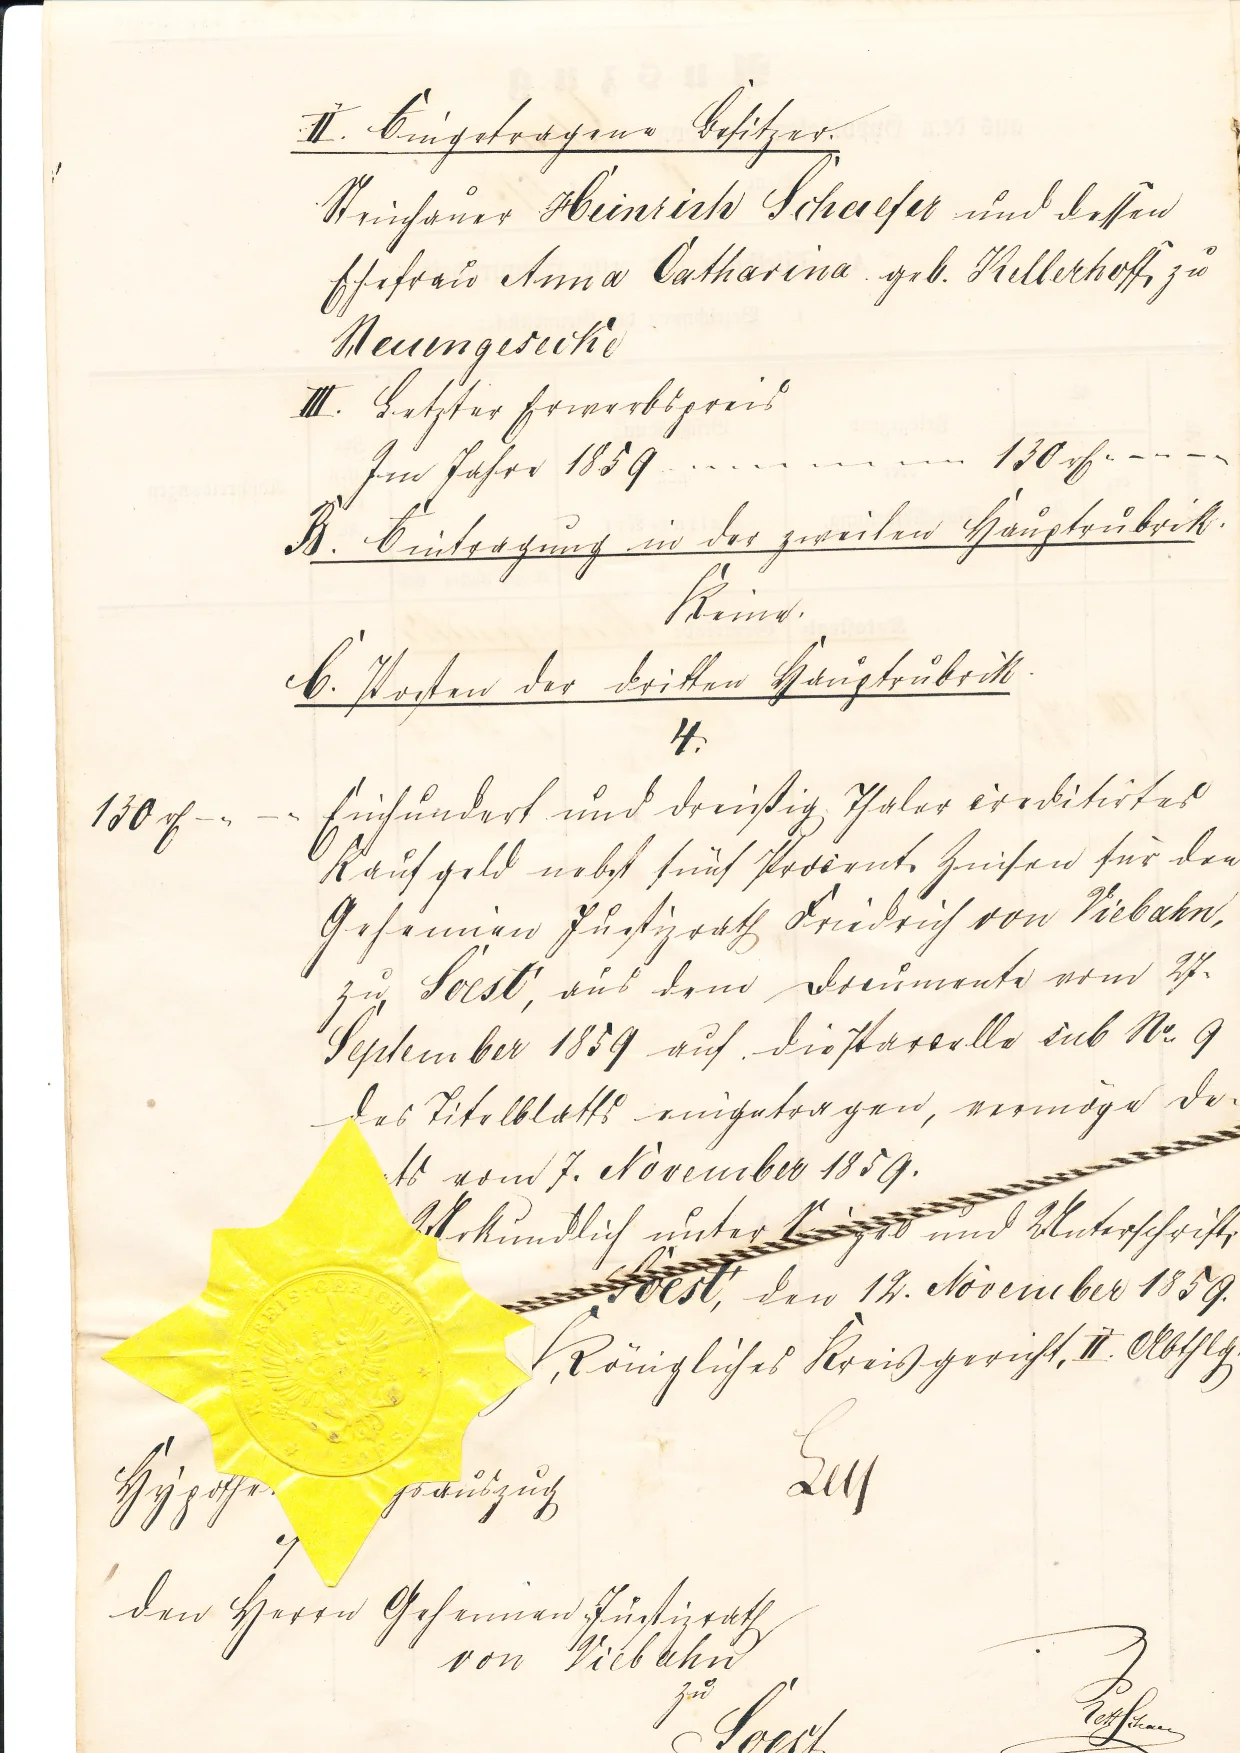 II. Eingetragene Besitzer.
Steinhauer Heinrich Schaefer und dessen
Ehefrau Anna Catharina geb. Kellerhoff, zu
Neuengesecke
III. Letzter Erwerbspreis
Im Jahre 1859 130 rℓ.
B. Eintragung in der zweiten Hauptrubrik.
Keine.
C. Posten der dritten Hauptrubrik.
4.
130 rℓ Einhundert und dreißig Thaler creditirtes
Kaufgeld nebst fünf Procent Zinsen für den
Geheimen Justizrath Friedrich von Viebahn,
zu Soest, aus dem Documente vom 27.
September 1859 auf die Parcelle sub No. 9
des Titelblatts eingetragen, vermöge De-
ets vom 7. November 1859.
Urkundlich unter Siegel und Unterschrift,
Soest, den 12. November 1859.
Königliches Kreisgericht, II. Abthlg.
Hypothe gsauszug
den Herrn Geheimen Justizrath
von Viebahn
zu
Soest